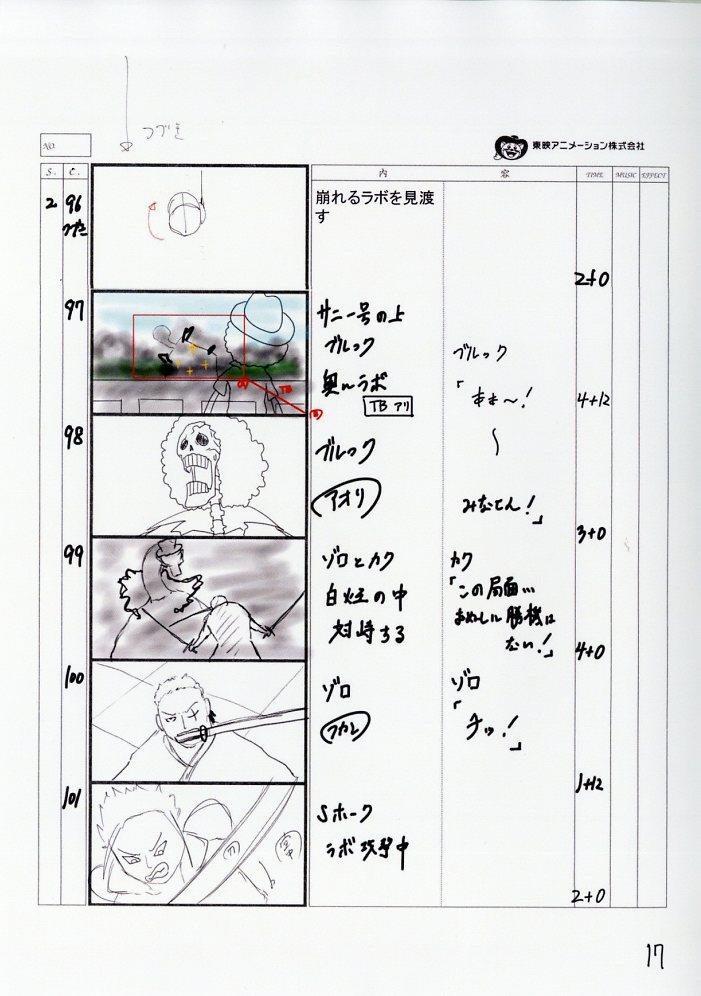 つづき
NO.
東映アニメーション株式会社
S. C. 内 容 TIME MUSIC EFFECT
2 96
つづき
崩れるラボを見渡
す
2+0
97
サニー号の上
ブルック
奥にラボ
TB アリ
A
TB
B
ブルック
「ああ〜!
4+12
98
ブルック
アオリ
〜
みなさん!」
3+0
99
ゾロとカク
白煙の中
対峙する
カク
「この局面…
おぬしに勝機は
ない!」
4+0
100
ゾロ
フカン
ゾロ
「
チッ!
」
1+12
101
Sホーク
ラボ攻撃中
2+0
17